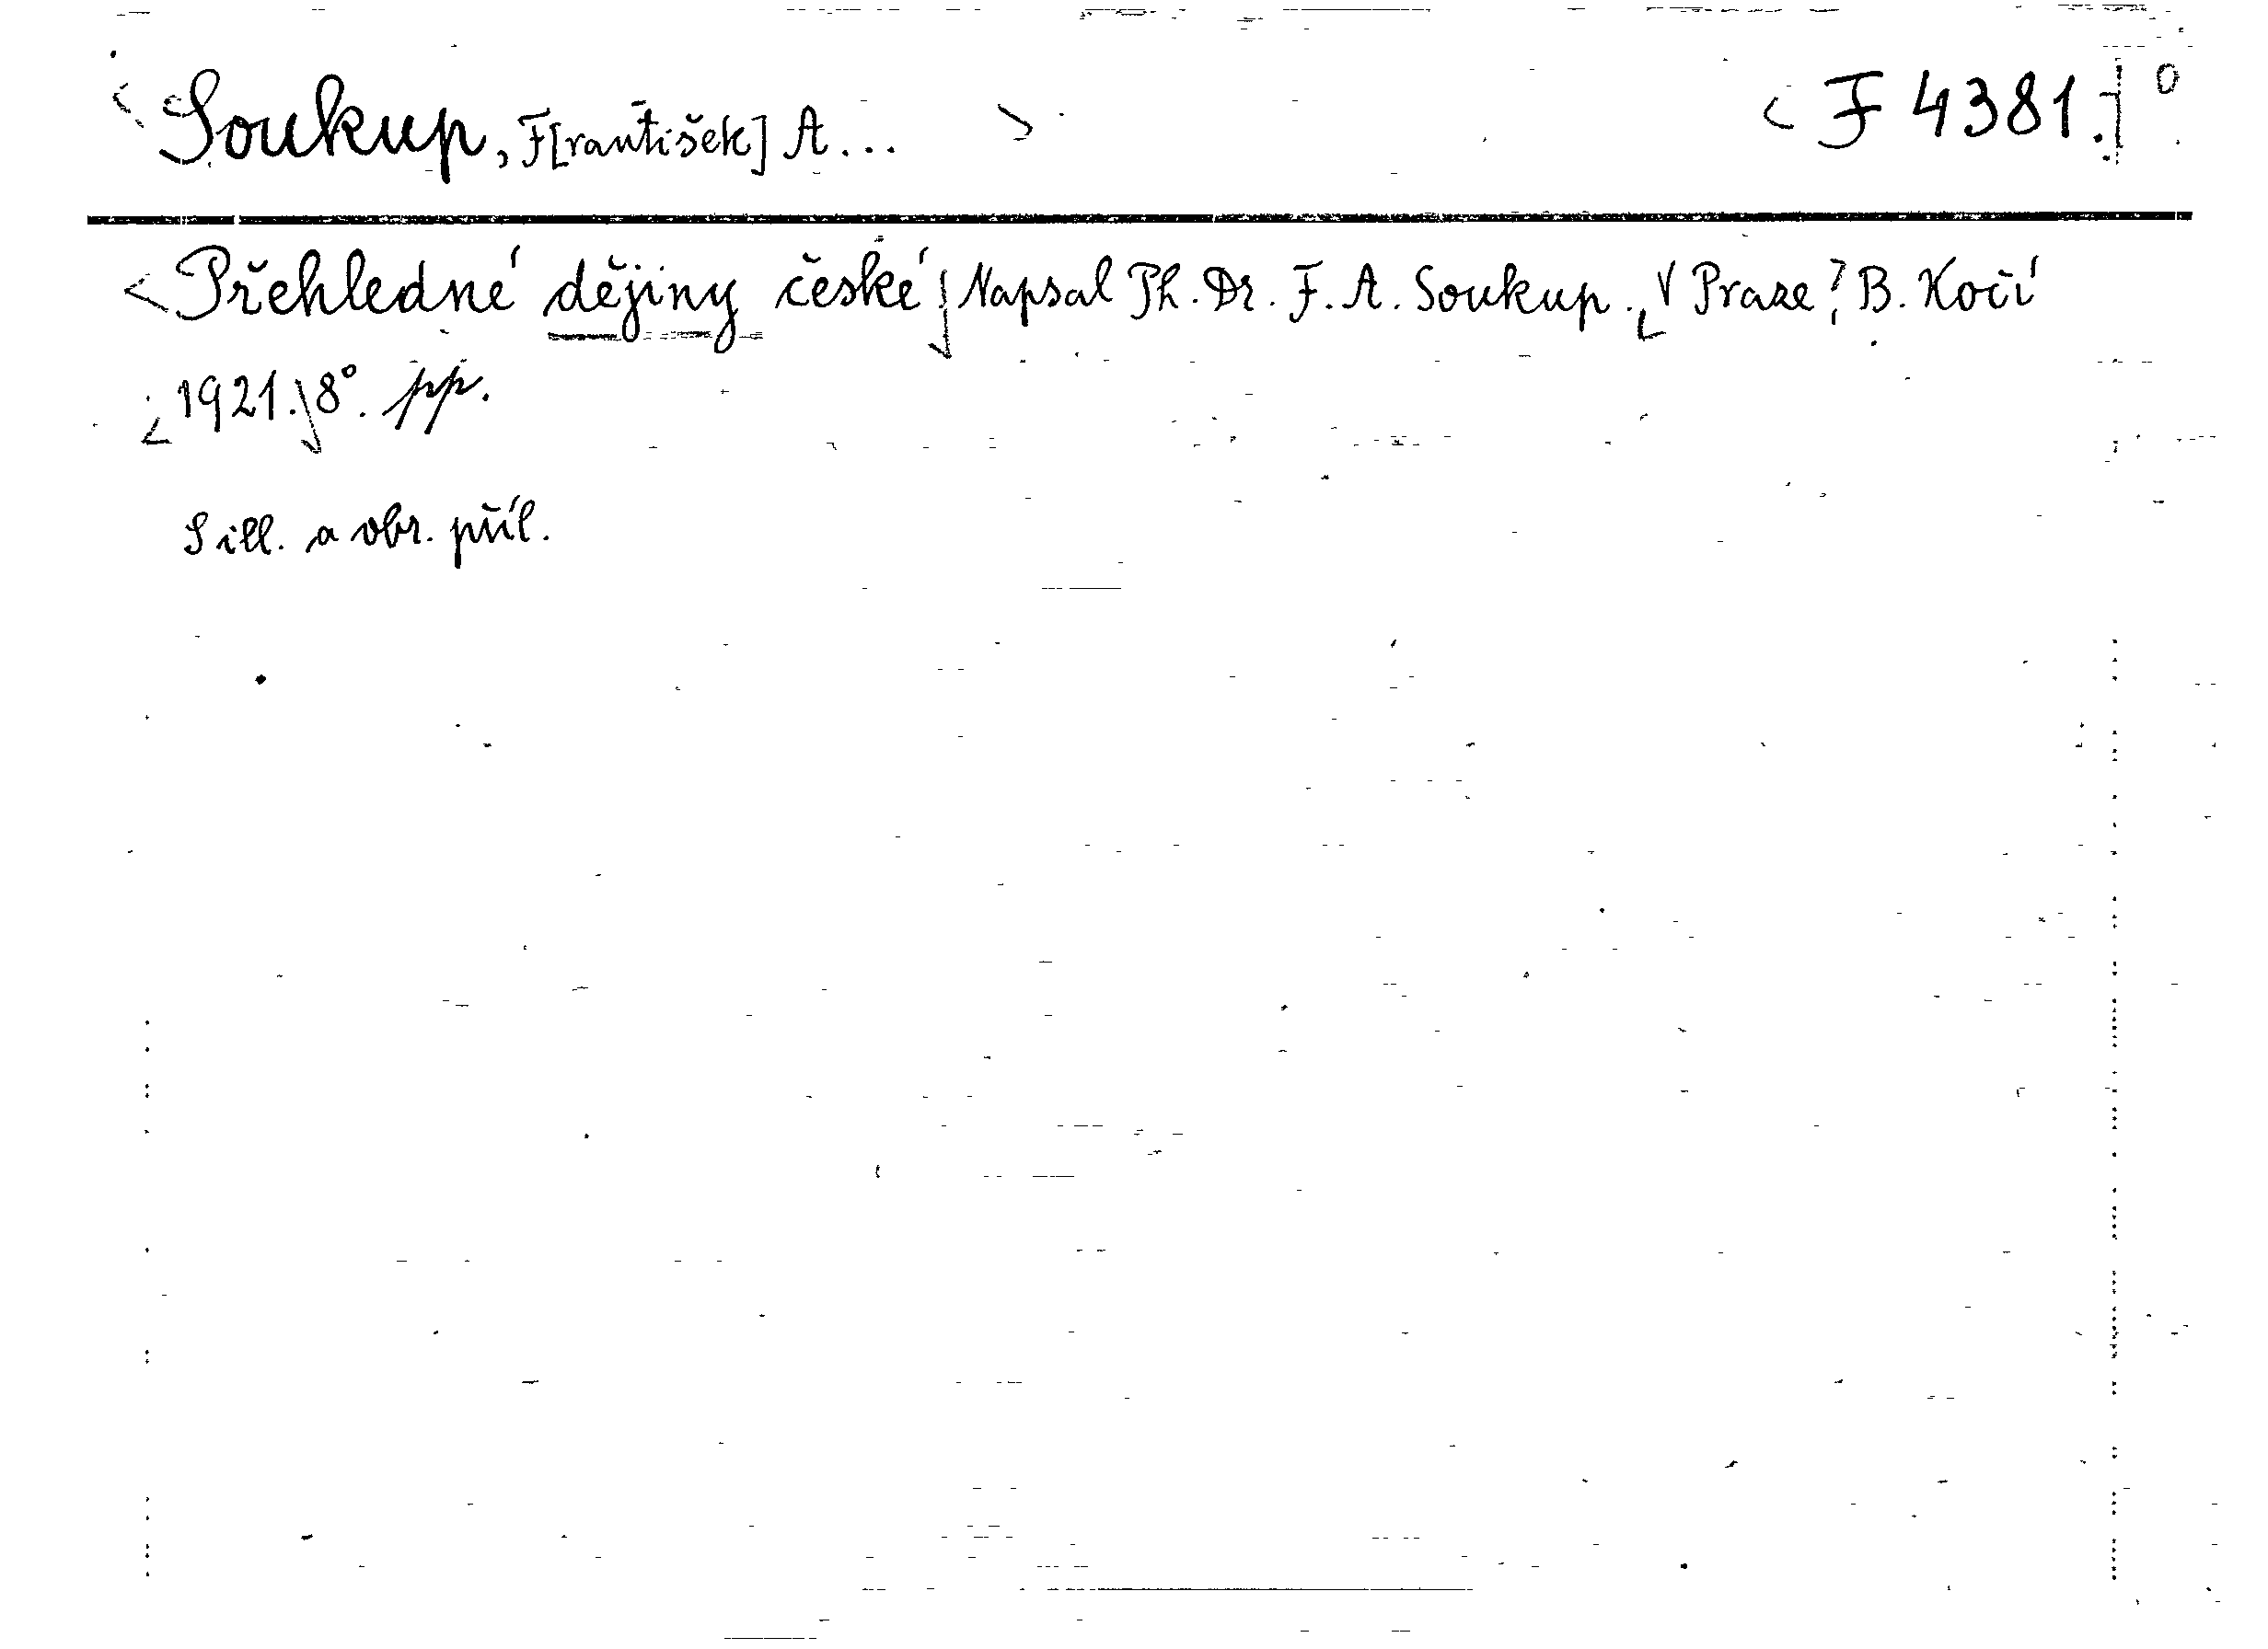 Soukup, F[rantišek] A... F 4381.
Přehledné dějiny české Napsal Ph. Dr. F. A. Soukup. V Praze, B. Kočí
1921. 8°. pp.
S ill. a obr. příl.